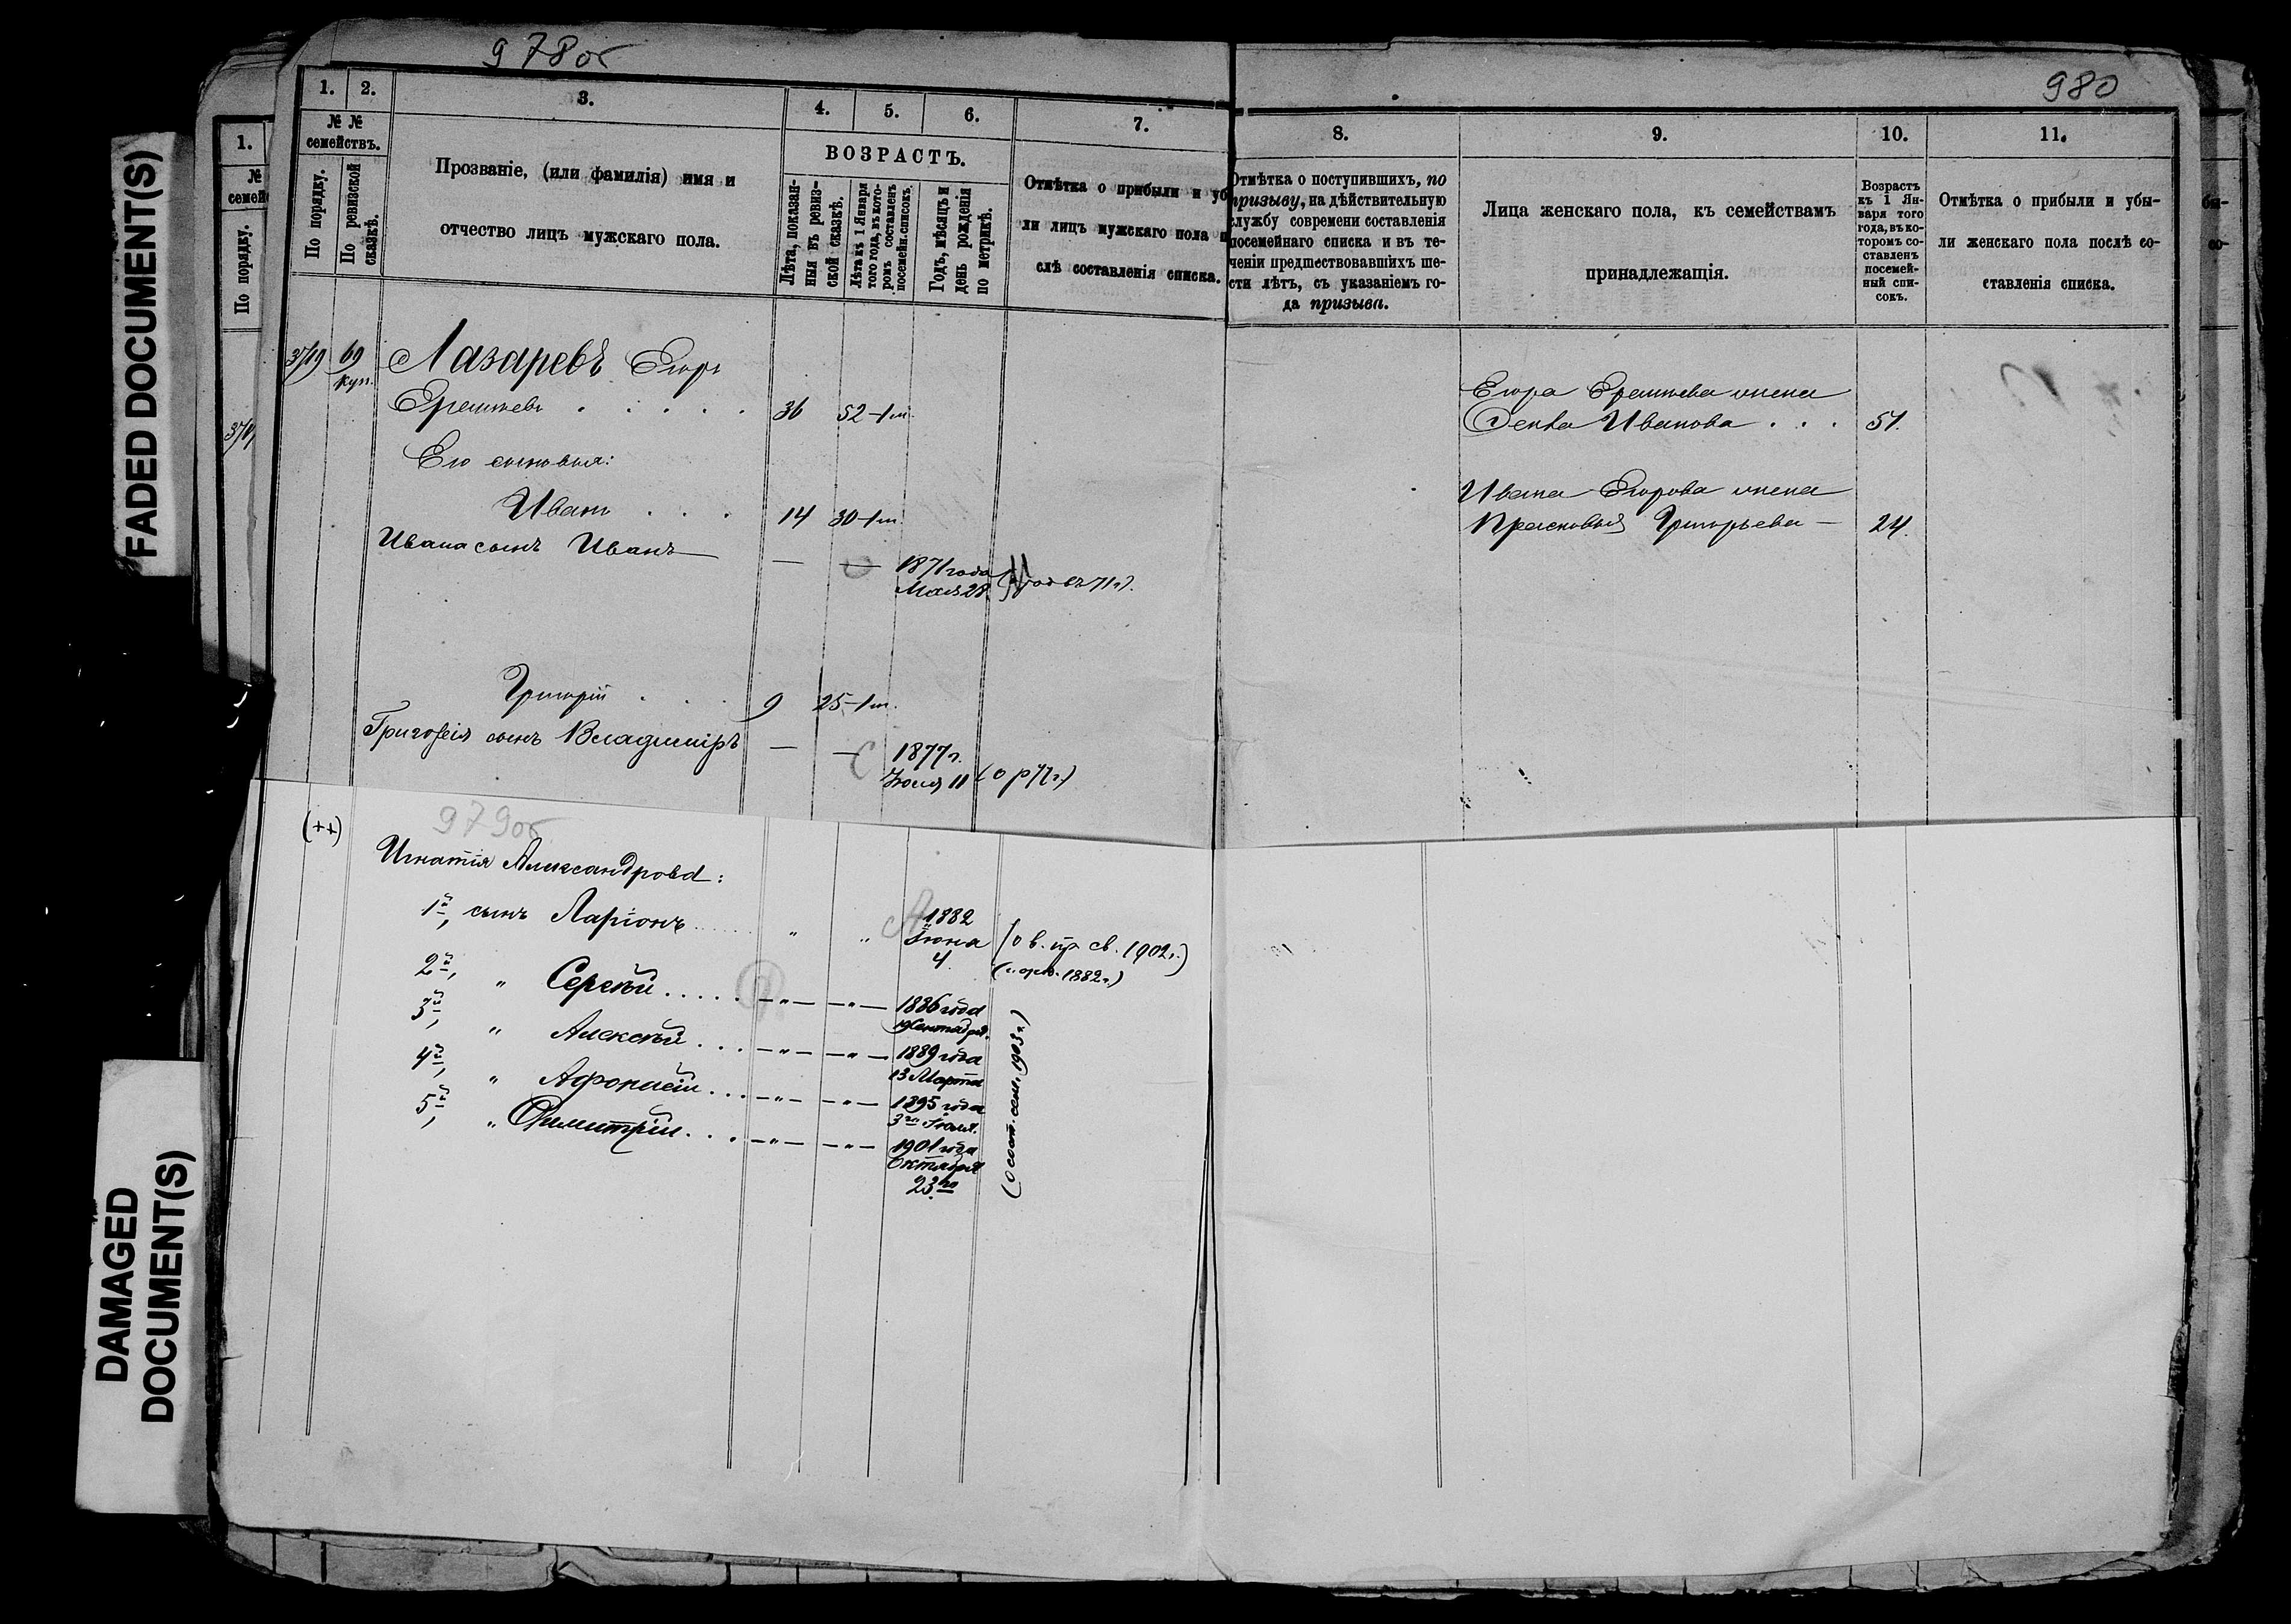 FADED DOCUMENT(S)
DAMAGED
DOCUMENT(S)
978об
980
1.
№
семей
По порядку.
1.
2.
3.
4.
5.
6.
7.
8.
9.
10.
11.
№ №
семействъ.
По порядку.
По ревизской
сказкѣ.
Прозваніе, (или фамилія) имя и
отчество лицъ мужскаго пола.
ВОЗРАСТЪ.
Лѣта, показан-
ныя въ ревиз-
ской сказкѣ.
Лѣта къ 1 Января
того года, въ кото-
ромъ составленъ
посемейн. списокъ.
Годъ, мѣсяцъ и
день рожденія
по метрикѣ.
Отмѣтка о прибыли и уб
ли лицъ мужскаго пола п
слѣ составленія списка.
Отмѣтка о поступившихъ, по
призыву, на дѣйствительную
службу современи составленія
посемейнаго списка и въ те-
ченіи предшествовавшихъ ше-
сти лѣтъ, съ указаніемъ го-
да призыва.
Лица женскаго пола, къ семействамъ
принадлежащія.
Возрастъ
къ 1 Ян-
варя того
года, въ ко-
торомъ со-
ставленъ
посемей-
ный спи-
сокъ.
Отмѣтка о прибыли и убы-
ли женскаго пола послѣ со-
ставленія списка.
бы-
со-
3719 69 Лазаревъ Егоръ
куп.
. . . . . 36 52-1м.
Его сыновья:
Иванъ . . . 14 30-1м.
Ивана сынъ Иванъ — — 1871 года
Мая 28.
Григорій . . . 9 25-1м.
Григорія сынъ Владиміръ — — 1877 г.
Іюля 11 (о р 77 г.)
Егора жена
Иванова . . . 51.
Ивана Егорова жена
Прасковья Григорьева — 24.
(++)
979об
Игнатія Александрова:
1й, сынъ Ларіонъ " " 1882
Іюня
4.
(о в. пр св. 1902 г.)
2й, " Сергѣй . . . . . —"— —"— 1886 года
19 Сентября.
3й, " Алексѣй . . . —"— —"— 1889 года
13 Марта
4й, " Афонасій . . . —"— —"— 1895 года
3го Іюля.
5й, " Димитрій . . . —"— —"— 1901 года
Октября
23го
(О сост. сем. 1903 г.)